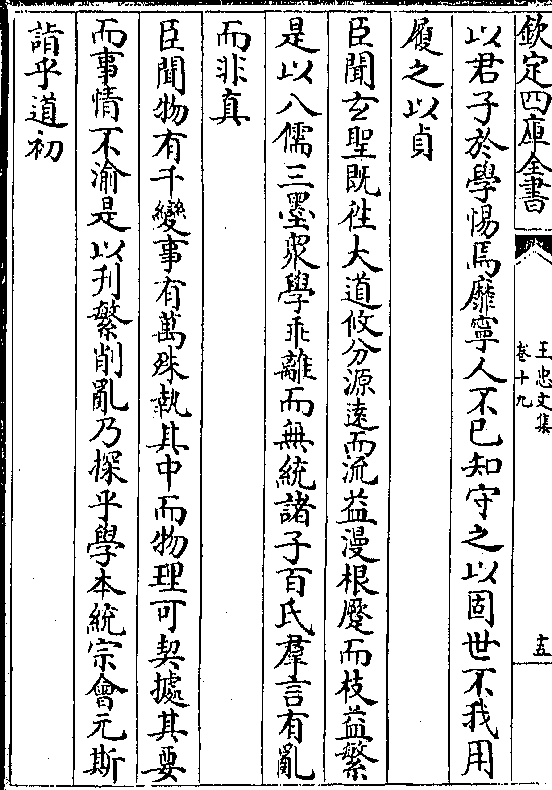 欽定四庫全書
王忠文集
卷十九
十五
以君子於學惕焉靡寧人不已知守之以固世不我用
履之以貞
臣聞玄聖既徃大道攸分源遠而流益漫根壓而枝益繁
是以八儒三墨衆學乖離而無統諸子百氏羣言有亂
而非真
臣聞物有千變事有萬殊執其中而物理可契據其要
而事情不渝是以刋繁削亂乃探乎學本統宗會元斯
詣乎道初